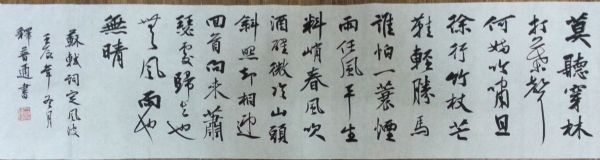 莫聽穿林
打葉聲
何妨吟嘯且
徐行竹杖芒
鞋輕勝馬
誰怕一蓑煙
雨任風平生
料峭春風吹
酒醒微冷山頭
斜照却相迎
回首向来蕭
瑟處歸去也
無風雨也
無晴
蘇軾詞定風波
壬辰年冬月
釋普通書